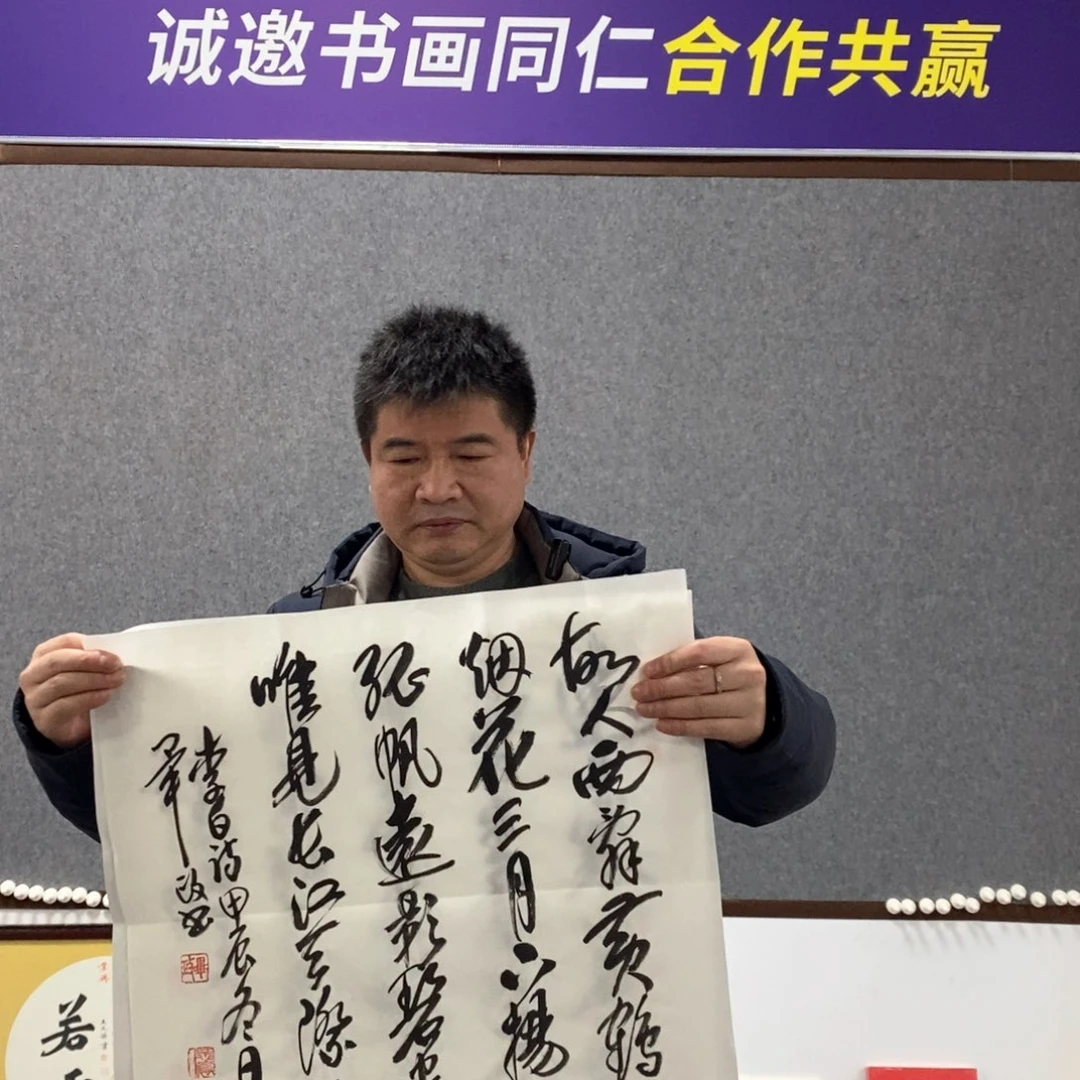 诚邀书画同仁合作共赢
故人西辞黄鹤
烟花三月下扬
孤帆远影碧空
唯见长江天际
李白诗甲辰冬月
若